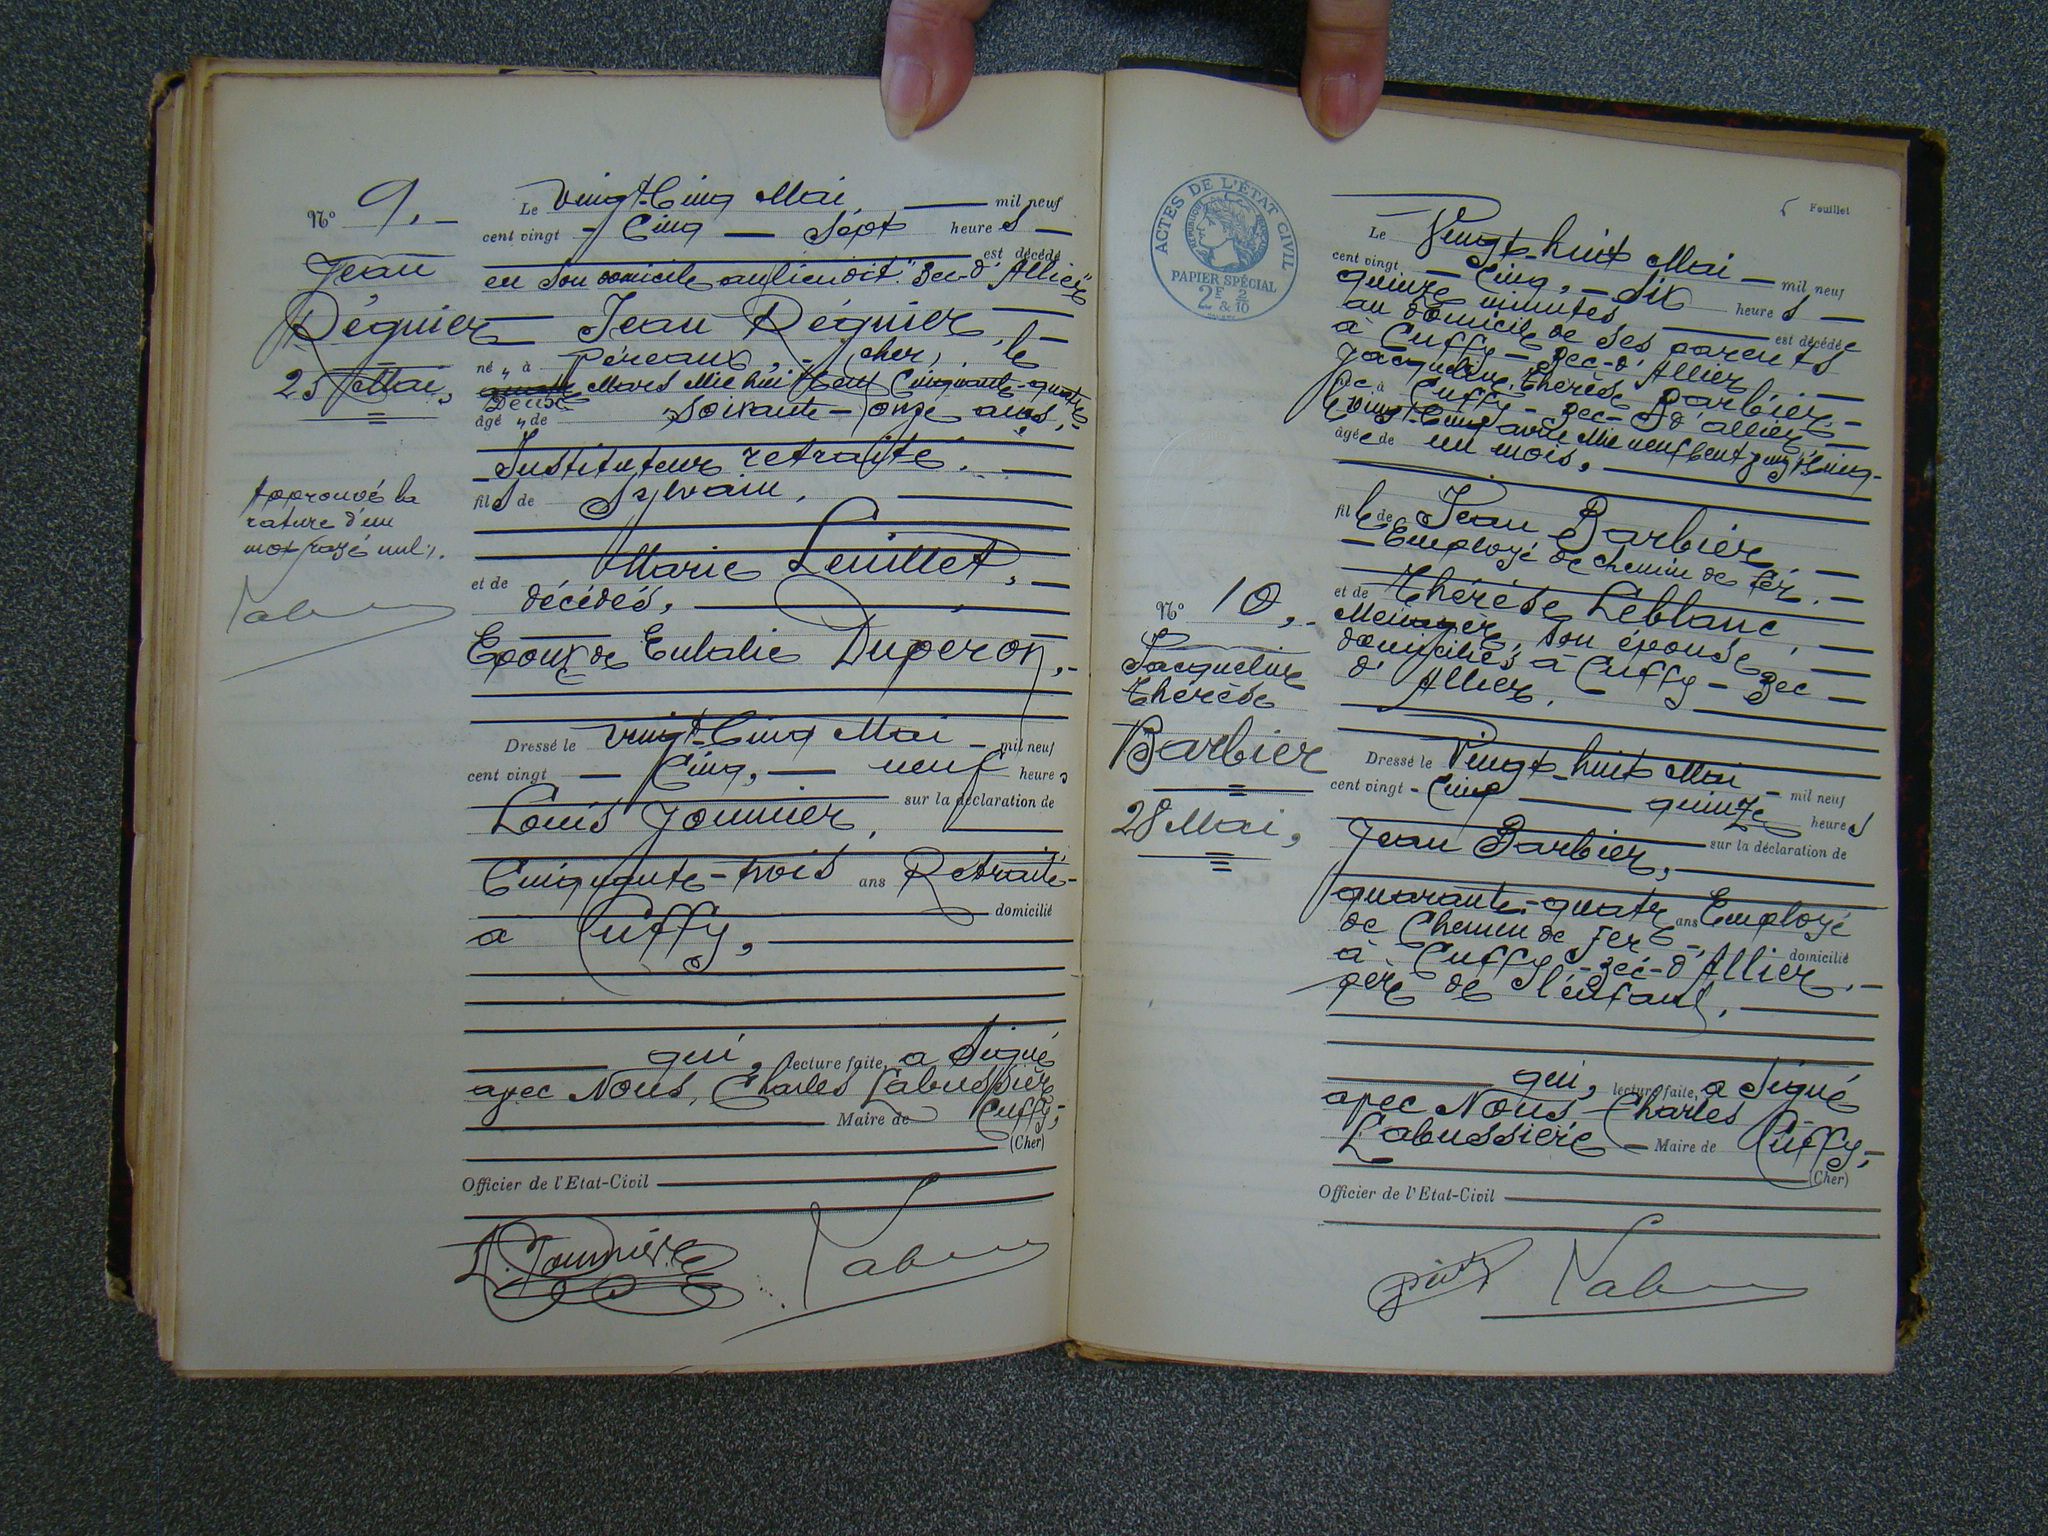 Nº 9.-
Jean
Régnier
25 Mai,
Approuvé la
rature d'un
mot rayé nul.
Le vingt-Cinq Mai, mil neuf
cent vingt - Cinq - Sept heures -
est décédé
en son domicile au lieu dit "Bec-d'Allier"
Jean Régnier,
né à (Cher), le
Deux Mars Mil huit Cent Cinquante-quatre
âgé de soixante-onze ans,
Instituteur retraité.
fils de Sylvain,
et de Marie Leuillet,
décédés,
Epoux de Eulalie Duperon,
Dressé le vingt-Cinq Mai - mil neuf
cent vingt - Cinq, - neuf heures
sur la déclaration de
Louis Jounnier,
Cinquante-trois ans Retraité-
domicilié
à Cuffy,
qui, lecture faite, a signé
avec Nous, Charles Labussière
Maire de Cuffy,
(Cher)
Officier de l'Etat-Civil
L. Jounnier
ACTES DE L'ÉTAT CIVIL
PAPIER SPÉCIAL
2F & 2/10
Nº 10,-
Jacqueline
Thérèse
Barbier
28 Mai,
5 Feuillet
Le Vingt-huit Mai - mil neuf
cent vingt - Cinq, - Six heures -
quinze minutes est décédée
au domicile de ses parents
à Cuffy - Bec-d'Allier
Jacqueline, Thérèse Barbier,
née à Cuffy - Bec-d'Allier
le vingt-Cinq avril Mil neuf Cent vingt-Cinq-
âgée de un mois,
fille de Jean Barbier,
- Employé de chemin de fer. -
et de Thérèse Leblanc,
Ménagère, son épouse,
domiciliés à Cuffy - Bec -
d'Allier,
Dressé le Vingt-huit Mai - mil neuf
cent vingt - Cinq quinze heures
sur la déclaration de
Jean Barbier,
quarante-quatre ans Employé
de Chemin de fer domicilié
à Cuffy - Bec-d'Allier, -
père de l'enfant,
qui, lecture faite, a signé
avec Nous - Charles
Labussière - Maire de Cuffy,-
(Cher)
Officier de l'Etat-Civil